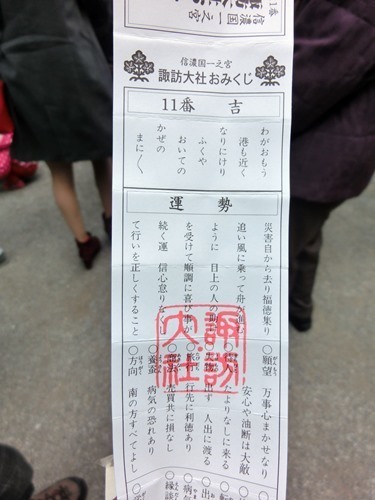 1番 信濃国一之宮
信濃国一之宮
諏訪大社おみくじ
11番 吉
わがおもう
港も近く
なりにけり
ふくや
おいての
かぜの
まに〱
運勢
災害自から去り福徳集り
追い風に乗って舟が進む
ように 目上の人の助け
を受けて順調に喜び事が
続く運 信心怠りなくし
て行いを正しくすること
○願望 万事心まかせなり
安心や油断は大敵
たよりなしに来る
出す 人出に渡る
○旅行 行先に利徳あり
売買共に損なし
○養蚕 病気の恐れあり
○方向 南の方すべてよし
諏訪大社